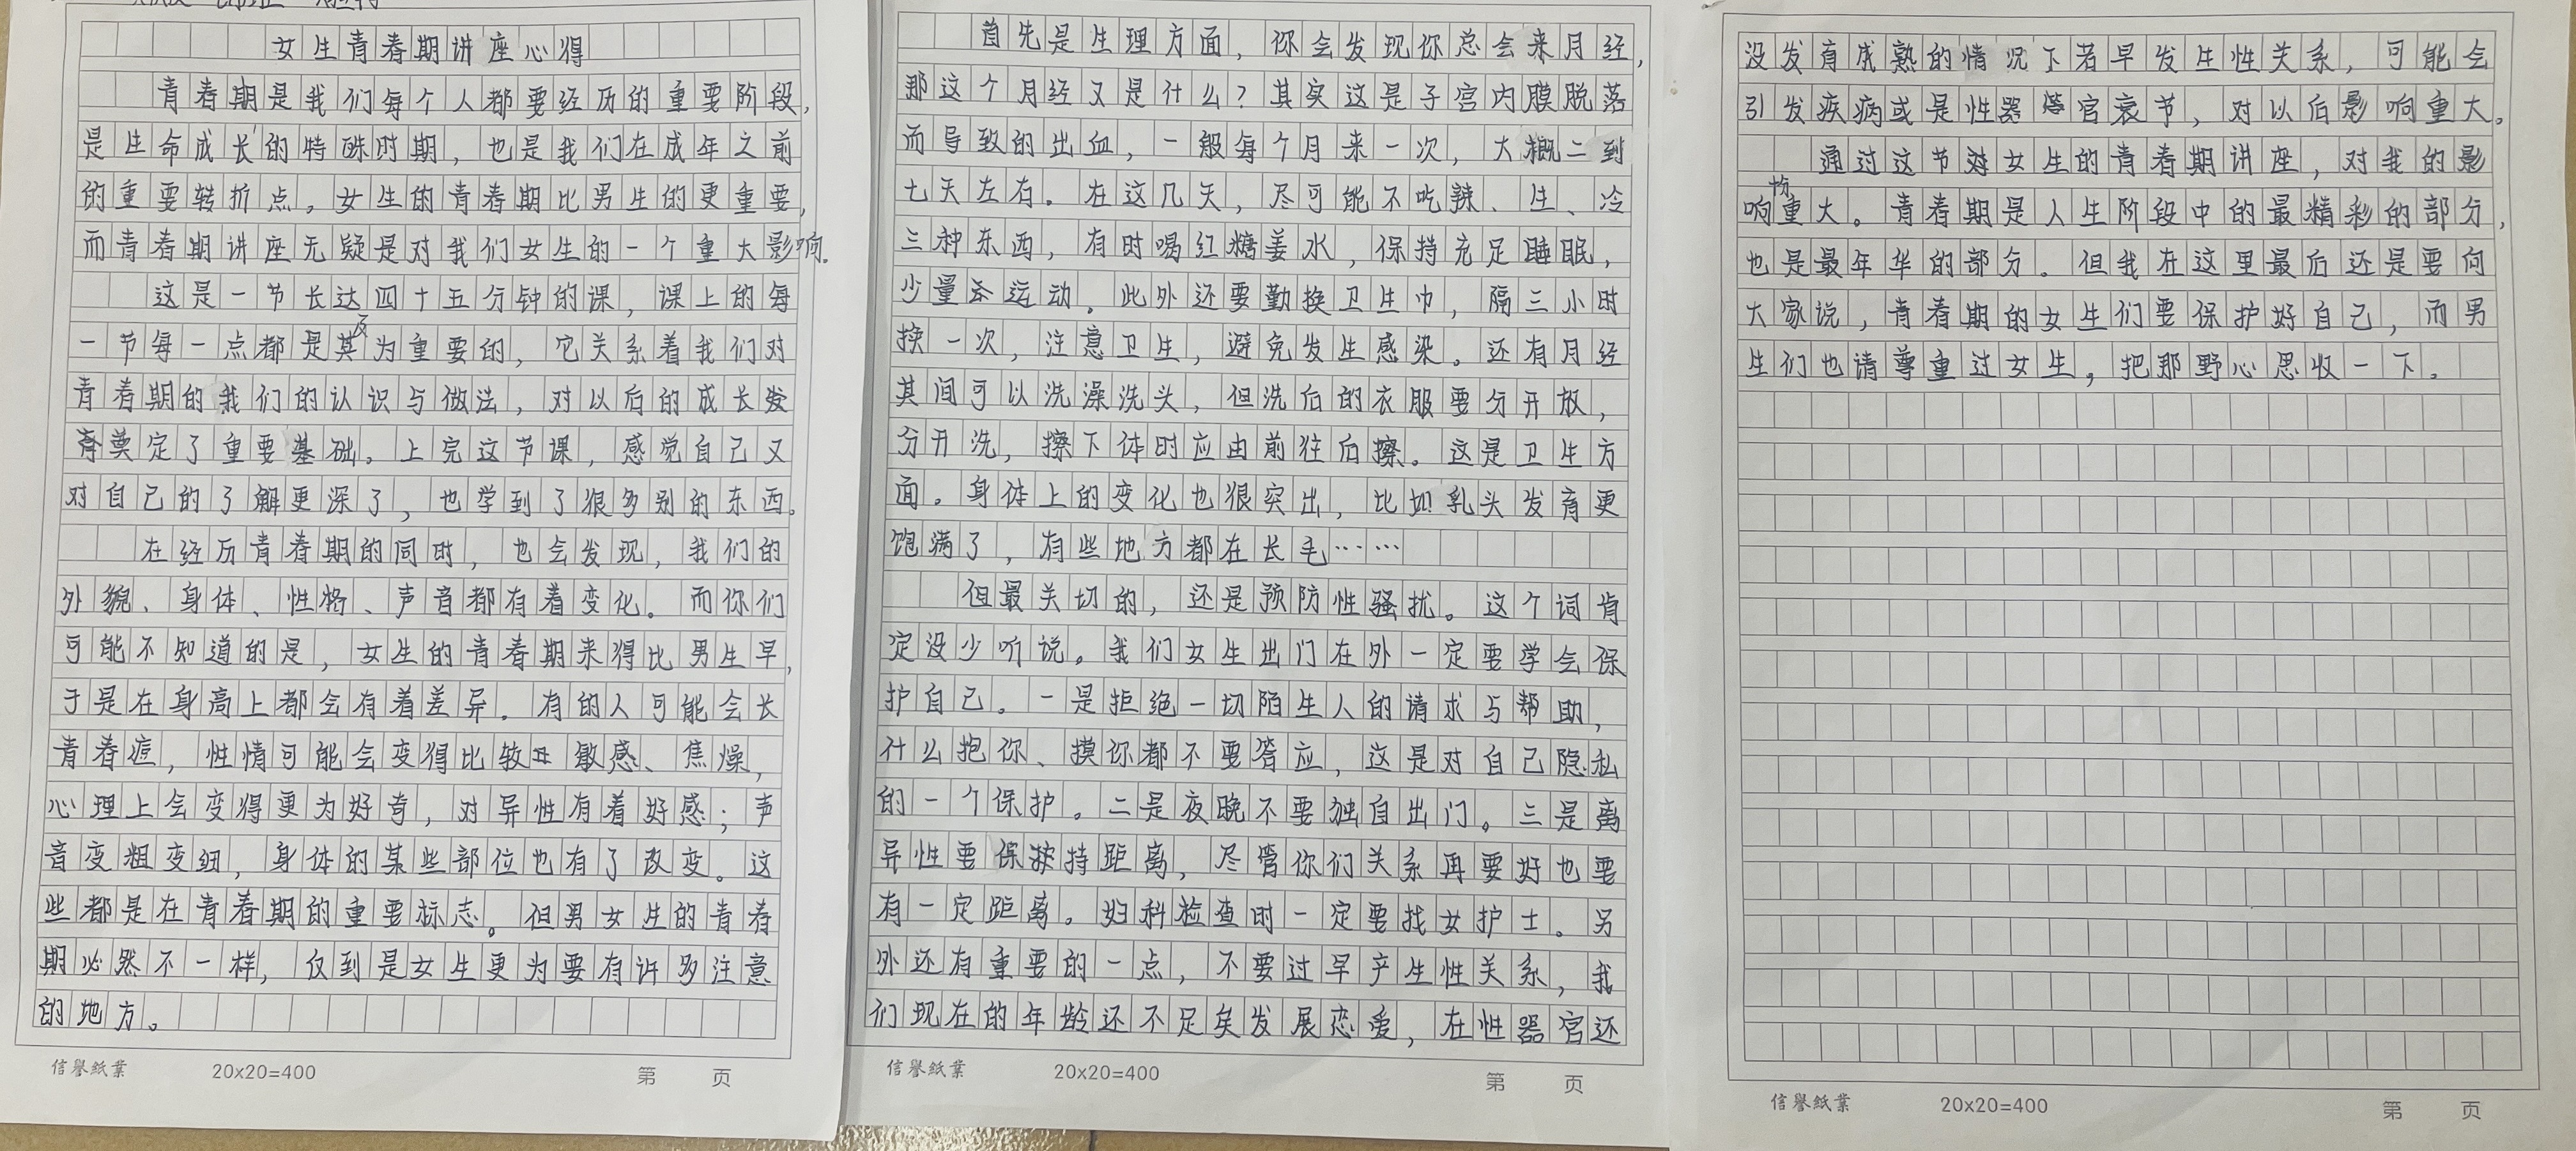 女生青春期讲座心得
青春期是我们每个人都要经历的重要阶段,
是生命成长的特殊时期，也是我们在成年之前
的重要转折点。女生的青春期比男生的更重要,
而青春期讲座无疑是对我们女生的一个重大影响.
这是一节长达四十五分钟的课，课上的每
一节每一点都是其为重要的，它关系着我们对
青春期的我们的认识与做法，对以后的成长发
育奠定了重要基础。上完这节课，感觉自己又
对自己的了解更深了，也学到了很多别的东西。
在经历青春期的同时，也会发现，我们的
外貌、身体、性格、声音都有着变化。而你们
可能不知道的是，女生的青春期来得比男生早,
于是在身高上都会有着差异。有的人可能会长
青春痘，性情可能会变得比较敏感、焦燥,
心理上会变得更为好奇，对异性有着好感；声
音变粗变细，身体的某些部位也有了改变。这
些都是在青春期的重要标志。但男女生的青春
期必然不一样，仅到是女生更为要有许多注意
的地方。
信譽紙業 20x20=400 第 页
首先是生理方面，你会发现你总会来月经,
那这个月经又是什么？其实这是子宫内膜脱落
而导致的出血，一般每个月来一次，大概二到
七天左右。在这几天，尽可能不吃辣、生、冷
三种东西，有时喝红糖姜水，保持充足睡眠，
少量运动。此外还要勤换卫生巾，隔三小时
换一次，注意卫生，避免发生感染。还有月经
其间可以洗澡洗头，但洗后的衣服要分开放，
分开洗，擦下体时应由前往后擦。这是卫生方
面。身体上的变化也很突出，比如乳头发育更
饱满了，有些地方都在长毛……
但最关切的，还是预防性骚扰。这个词肯
定没少听说。我们女生出门在外一定要学会保
护自己。一是拒绝一切陌生人的请求与帮助，
什么抱你、摸你都不要答应，这是对自己隐私
的一个保护。二是夜晚不要独自出门。三是离
异性要保持距离，尽管你们关系再要好也要
有一定距离。妇科检查时一定要找女护士。另
外还有重要的一点，不要过早产生性关系，我
们现在的年龄还不足矣发展恋爱，在性器官还
信譽紙業 20x20=400 第 页
没发育成熟的情况下若早发生性关系，可能会
引发疾病或是性器官衰节，对以后影响重大。
通过这节对女生的青春期讲座，对我的影
响重大。青春期是人生阶段中的最精彩的部分，
也是最年华的部分。但我在这里最后还是要向
大家说，青春期的女生们要保护好自己，而男
生们也请尊重过女生，把那野心思收一下。
信譽紙業 20x20=400 第 页